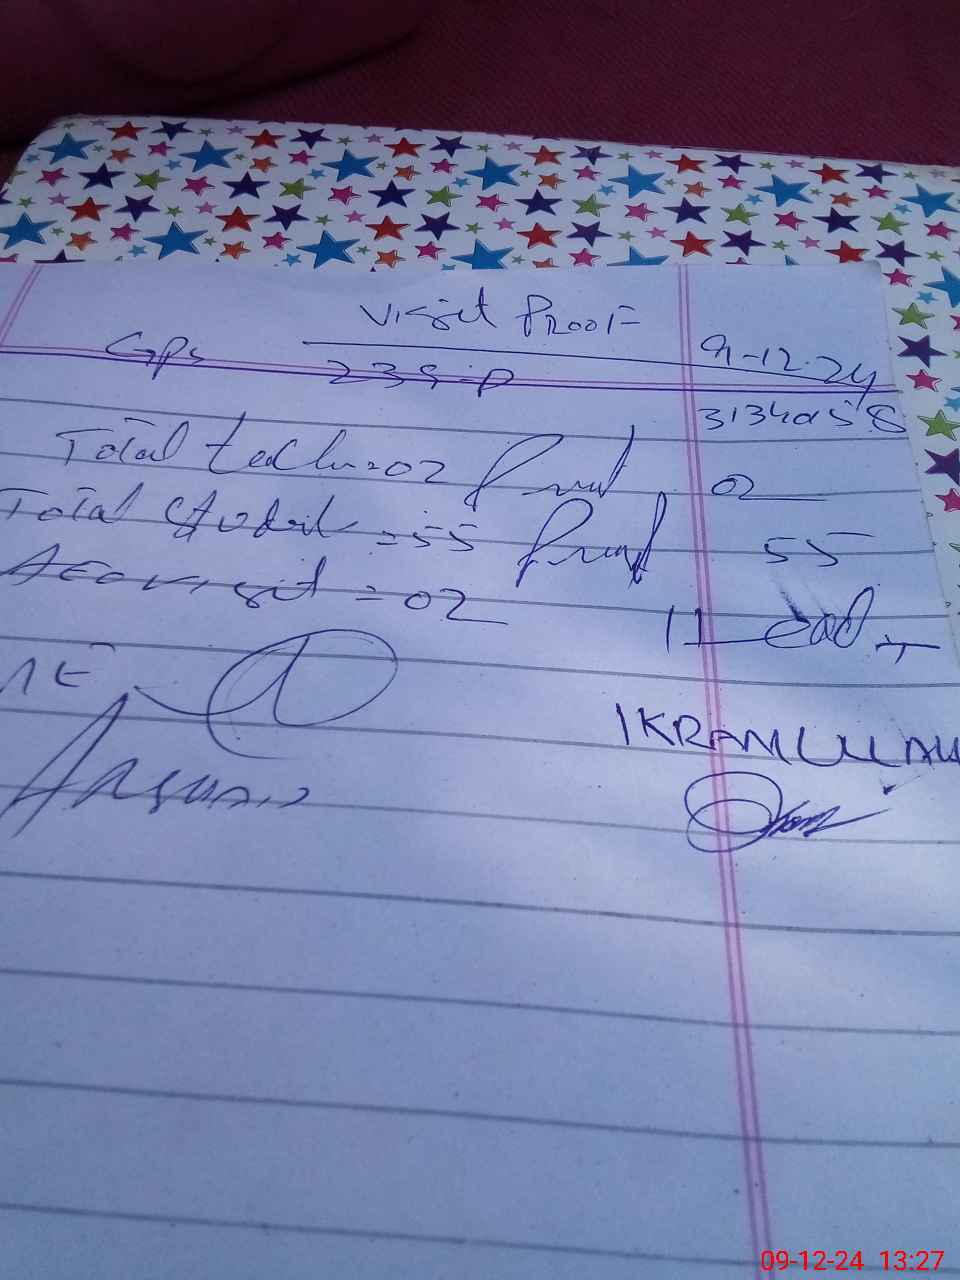 Visit Proof
GPS 239-P 9-12-24
31340158
Total teach=02 Prent 02
Total Student =55 Prent 55
AEO visit =02
Head
AE
IKRAMULLAH
ARSHAD
09-12-24 13:27